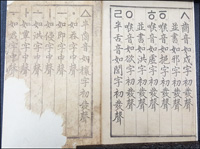 ㅅ 齒音如戌字初發聲
並書如邪字初發聲
ㆆ 喉音如挹字初發聲
ㅎ 喉音如虛字初發聲
並書如洪字初發聲
ㅇ 喉音如欲字初發聲
ㄹ 半舌音如閭字初發聲
ㅿ 半齒音如穰字初發聲
ㆍ 如呑字中聲
ㅡ 如即字中聲
ㅣ 如侵字中聲
ㅗ 如洪字中聲